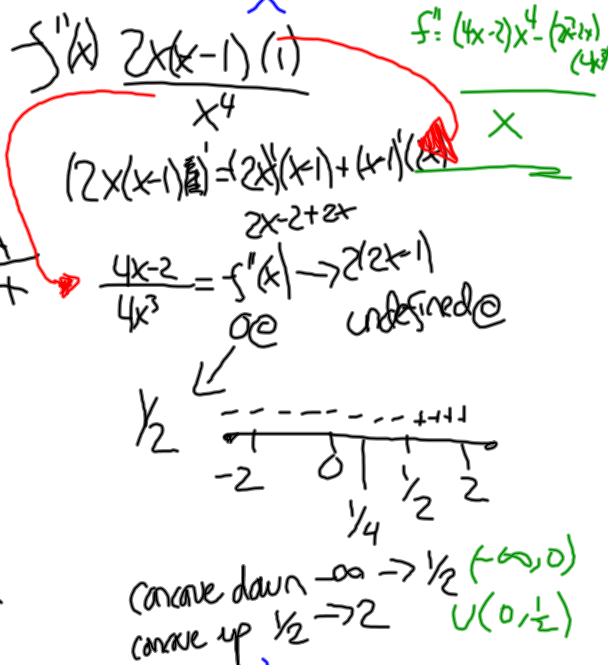 f''(x) 2x(x-1)(1)
x⁴
f'' = (4x-2)x⁴ - (2x²-2x)
(4x³
x
(2x(x-1))' = (2x)'(x-1) + (x-1)'(2x)
2x-2+2x
4x-2 = f''(x) → 2(2x-1)
4x³
0@ undefined@
1/2
- - - - - - - - - ++++
-2 0 1/4 1/2 2
concave down -∞ → 1/2 (-∞,0)
concave up 1/2 → 2 U(0,1/2)